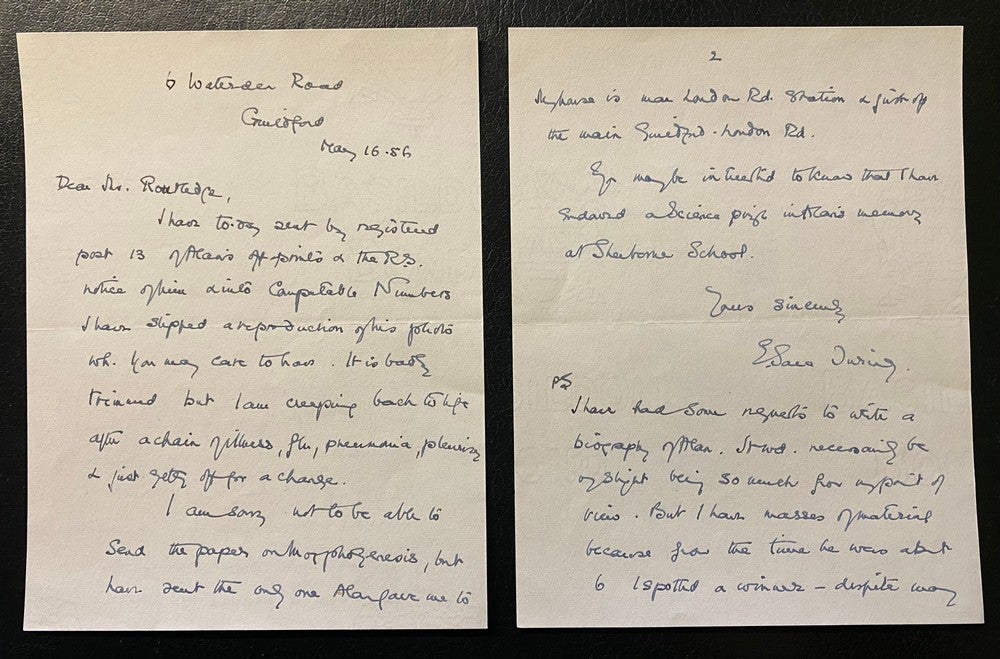 6 Waterden Road
Guildford
May 16.56
Dear Mr. Routledge,
I have to-day sent by registered
post 13 of Alan's off prints & the R.S.
notice of him & into Computable Numbers
I have slipped a reproduction of his photo
wh. you may care to have. It is badly
trimmed but I am creeping back to life
after a chain of illness, flu, pneumonia, pleurisy
& just getting off for a change.
I am sorry not to be able to
send the papers on Morphogenesis, but
have sent the only one Alan gave me to
2
My house is near London Rd. Station & just off
the main Guildford-London Rd.
You may be interested to know that I have
endowed a Science prize in Alan's memory
at Sherborne School.
Yours sincerely
E. Sara Turing.
PS
I have had some requests to write a
biography of Alan. It wd. necessarily be
being so much from my point of
view. But I have masses of material
because from the time he was about
6 I spotted a winner – despite many